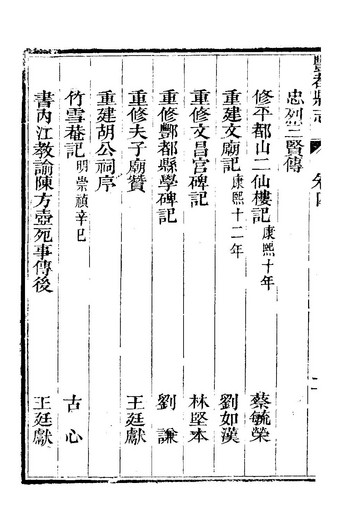 忠烈三賢傳
修平都山二仙樓記康熙十年 蔡毓榮
重建文廟記康熙十二年 劉如漢
重修文昌宮碑記 林堅本
重修酆都縣學碑記 劉謙
重修夫子廟贊 王廷獻
重建胡公祠序
竹雪菴記明崇禎辛巳 古心
書內江教諭陳方壺死事傳後 王廷獻